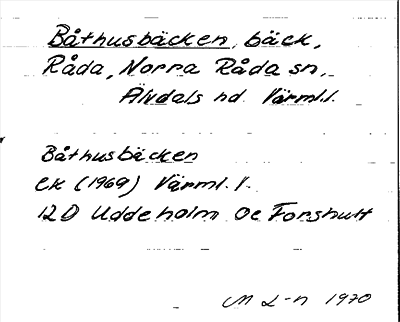 Båthusbäcken, bäck,
Råda, Norra Råda sn,
Älvdals hd. Värml.l.
Båthusbäcken
ek (1969) Värml. l.
12D Uddeholm oc Forshult
M L-n 1970